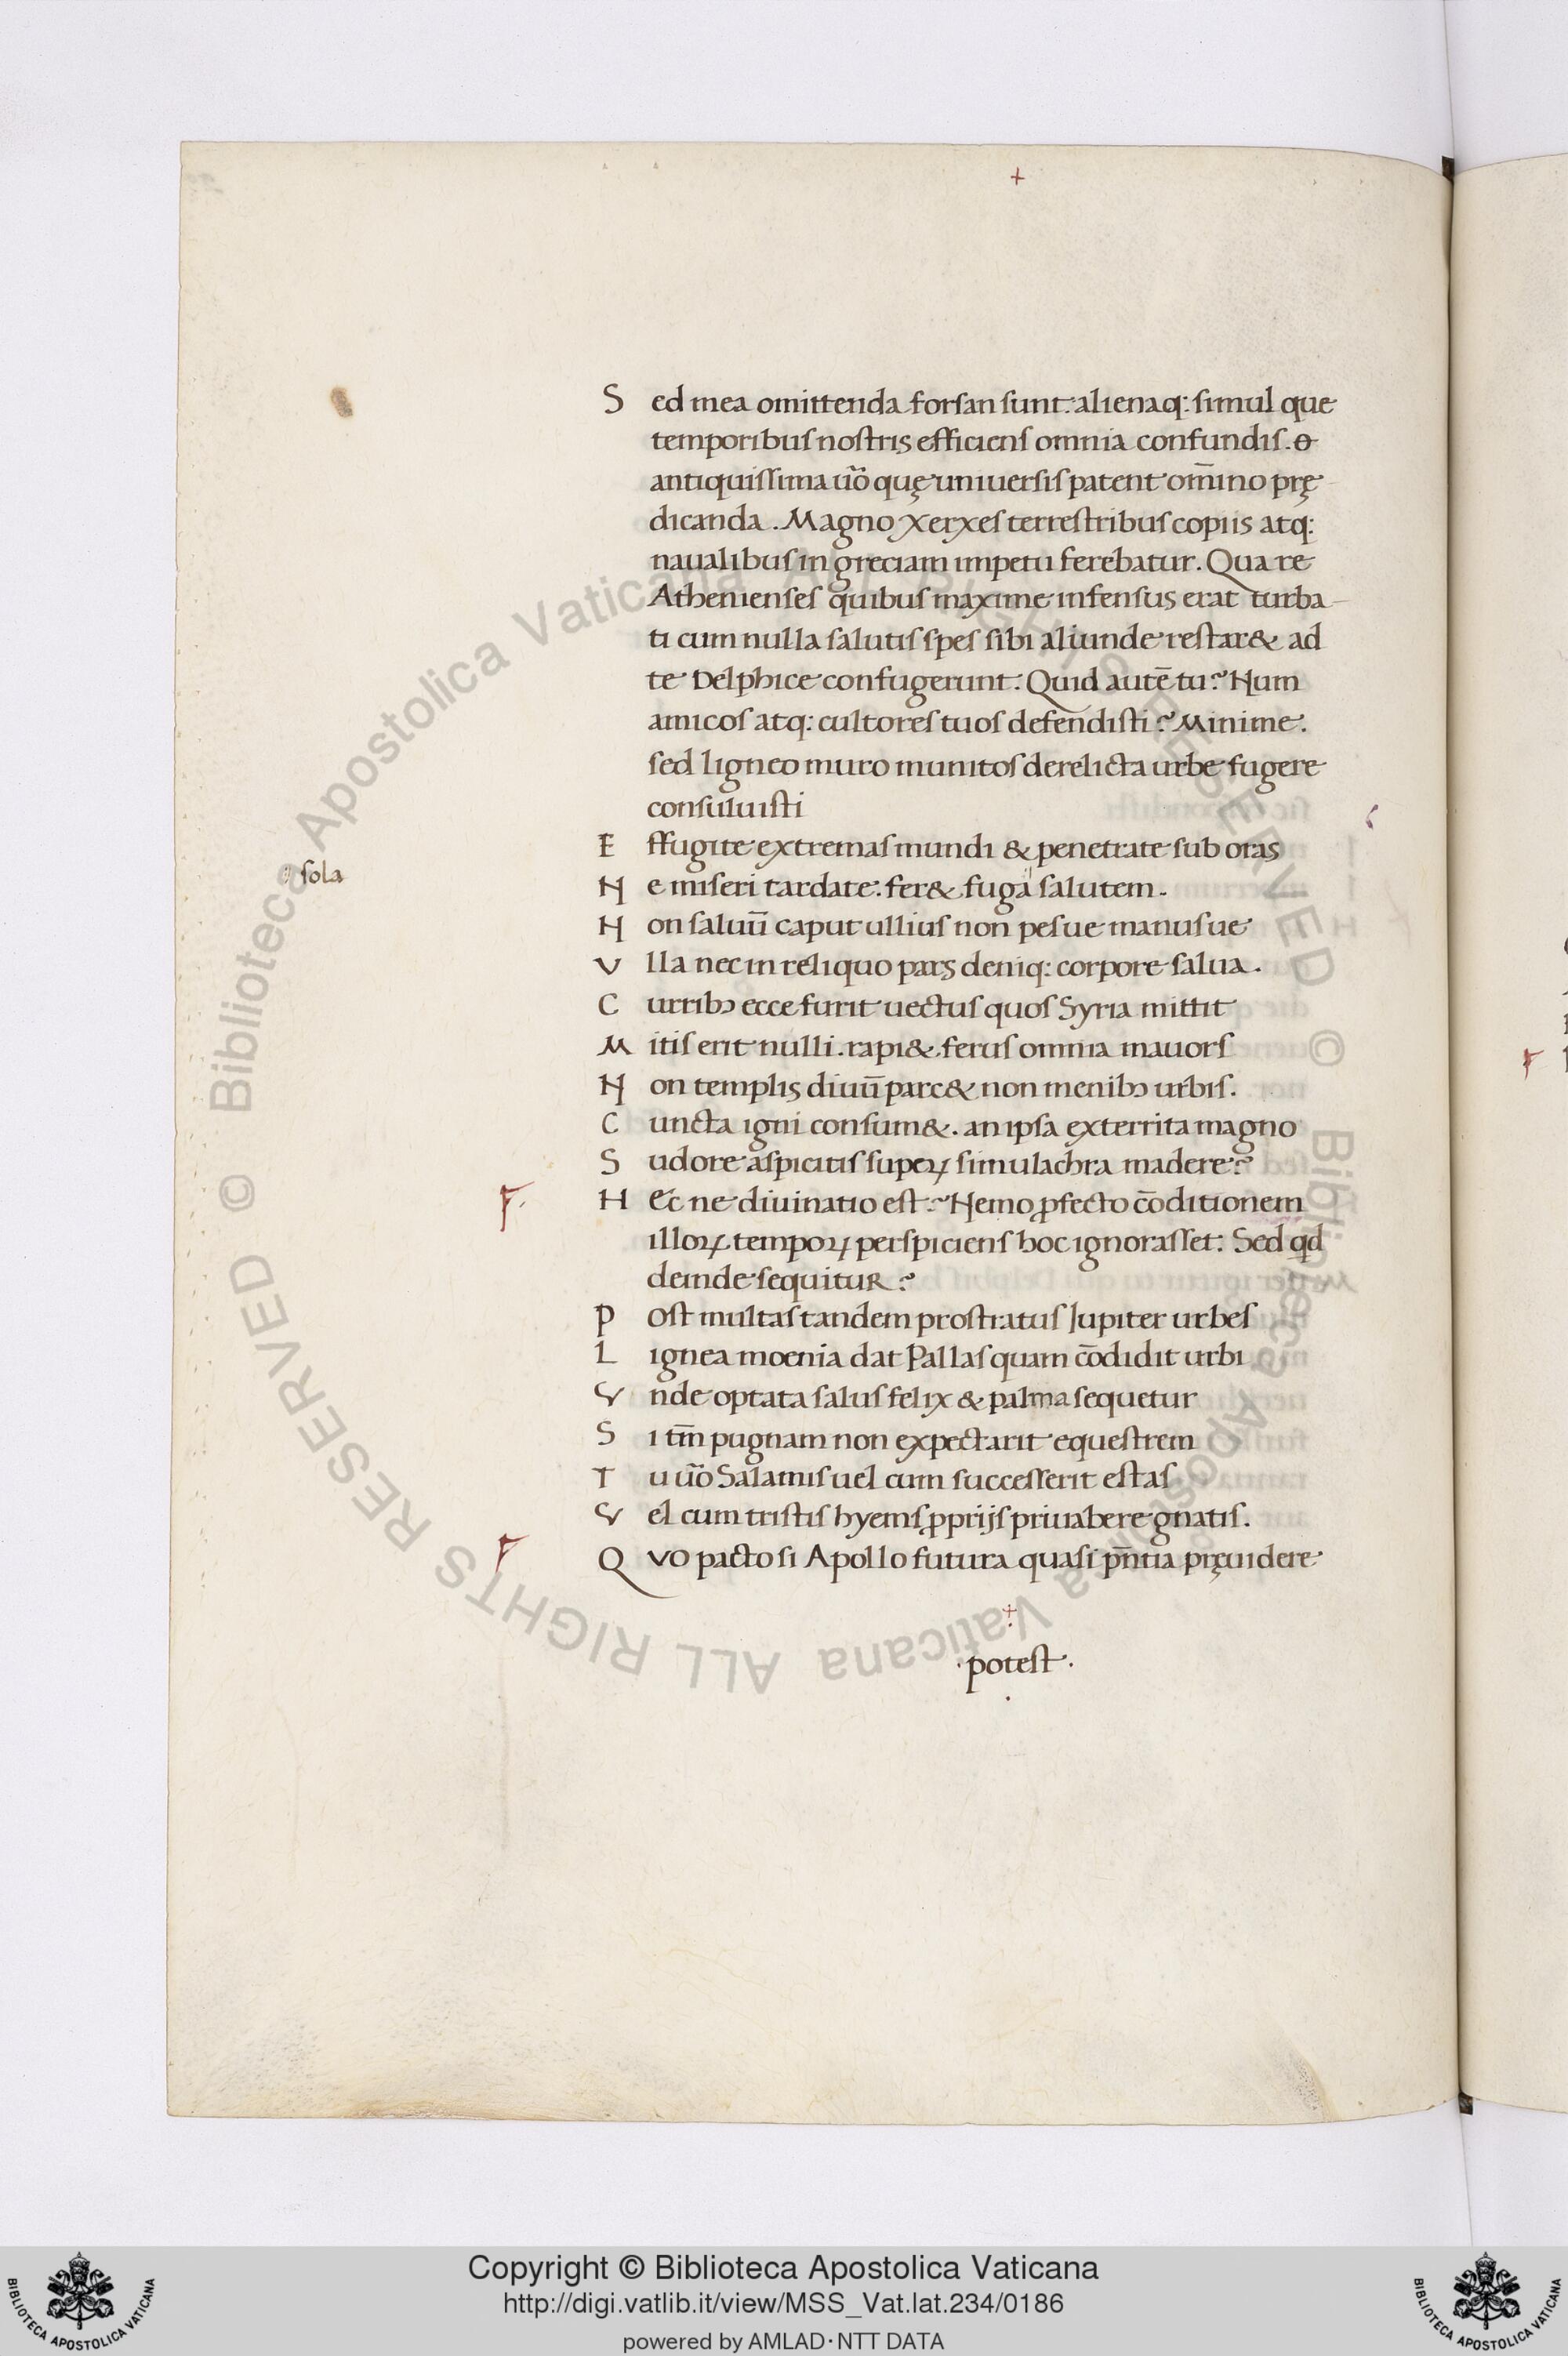 Sed mea omittenda forsan sunt: alienaq: simul que
temporibus nostris efficiens omnia confundis. &
antiquissima uo᷃ quę uniuersis patent om̅ino prę
dicanda. Magno Xerxes terrestribus copiis atq:
naualibus in greciam impetu ferebatur. Qua re
Athenienses quibus maxime infensus erat turba-
ti cum nulla salutis spes sibi aliunde restar& ad
te Delphice confugerunt. Quid autē tu? Num
amicos atq: cultores tuos defendisti? Minime.
sed ligneo muro munitos derelicta urbe fugere
consuluisti
Effugite extremas mundi & penetrate sub oras
sola
Ne miseri tardate: fer& fuga salutem.
Non saluū caput ullius non pesue manusue
Vlla nec in reliquo pars deniq: corpore salua.
Curribꝯ ecce furit uectus quos Syria mittit
Mitis erit nulli. rapi& ferus omnia mauors
Non templis diuū parc& non menibꝯ urbis.
Cuncta igni consum&. an ipsa exterrita magno
Sudore aspicitis superꝝ simulachra madere?
F.
HEc ne diuinatio est? Nemo ꝓfecto cōditionem
illoꝝ tempoꝝ perspiciens hoc ignorasset. Sed qd
deinde sequitur?
Post multas tandem prostratus Jupiter urbes
Lignea moenia dat Pallas quam cōdidit urbi
Vnde optata salus felix & palma sequetur
Si tm̅ pugnam non expectarit equestrem
Tu uo᷃ Salamis uel cum successerit estas
Vel cum tristis hyems ꝓprijs priuabere gnatis.
F
QVo pacto si Apollo futura quasi pn̅tia pręuidere
.potest.
Copyright © Biblioteca Apostolica Vaticana
http://digi.vatlib.it/view/MSS_Vat.lat.234/0186
powered by AMLAD·NTT DATA
BIBLIOTECA APOSTOLICA VATICANA
BIBLIOTECA APOSTOLICA VATICANA
© Biblioteca Apostolica Vaticana ALL RIGHTS RESERVED
© Biblioteca Apostolica Vaticana ALL RIGHTS RESERVED